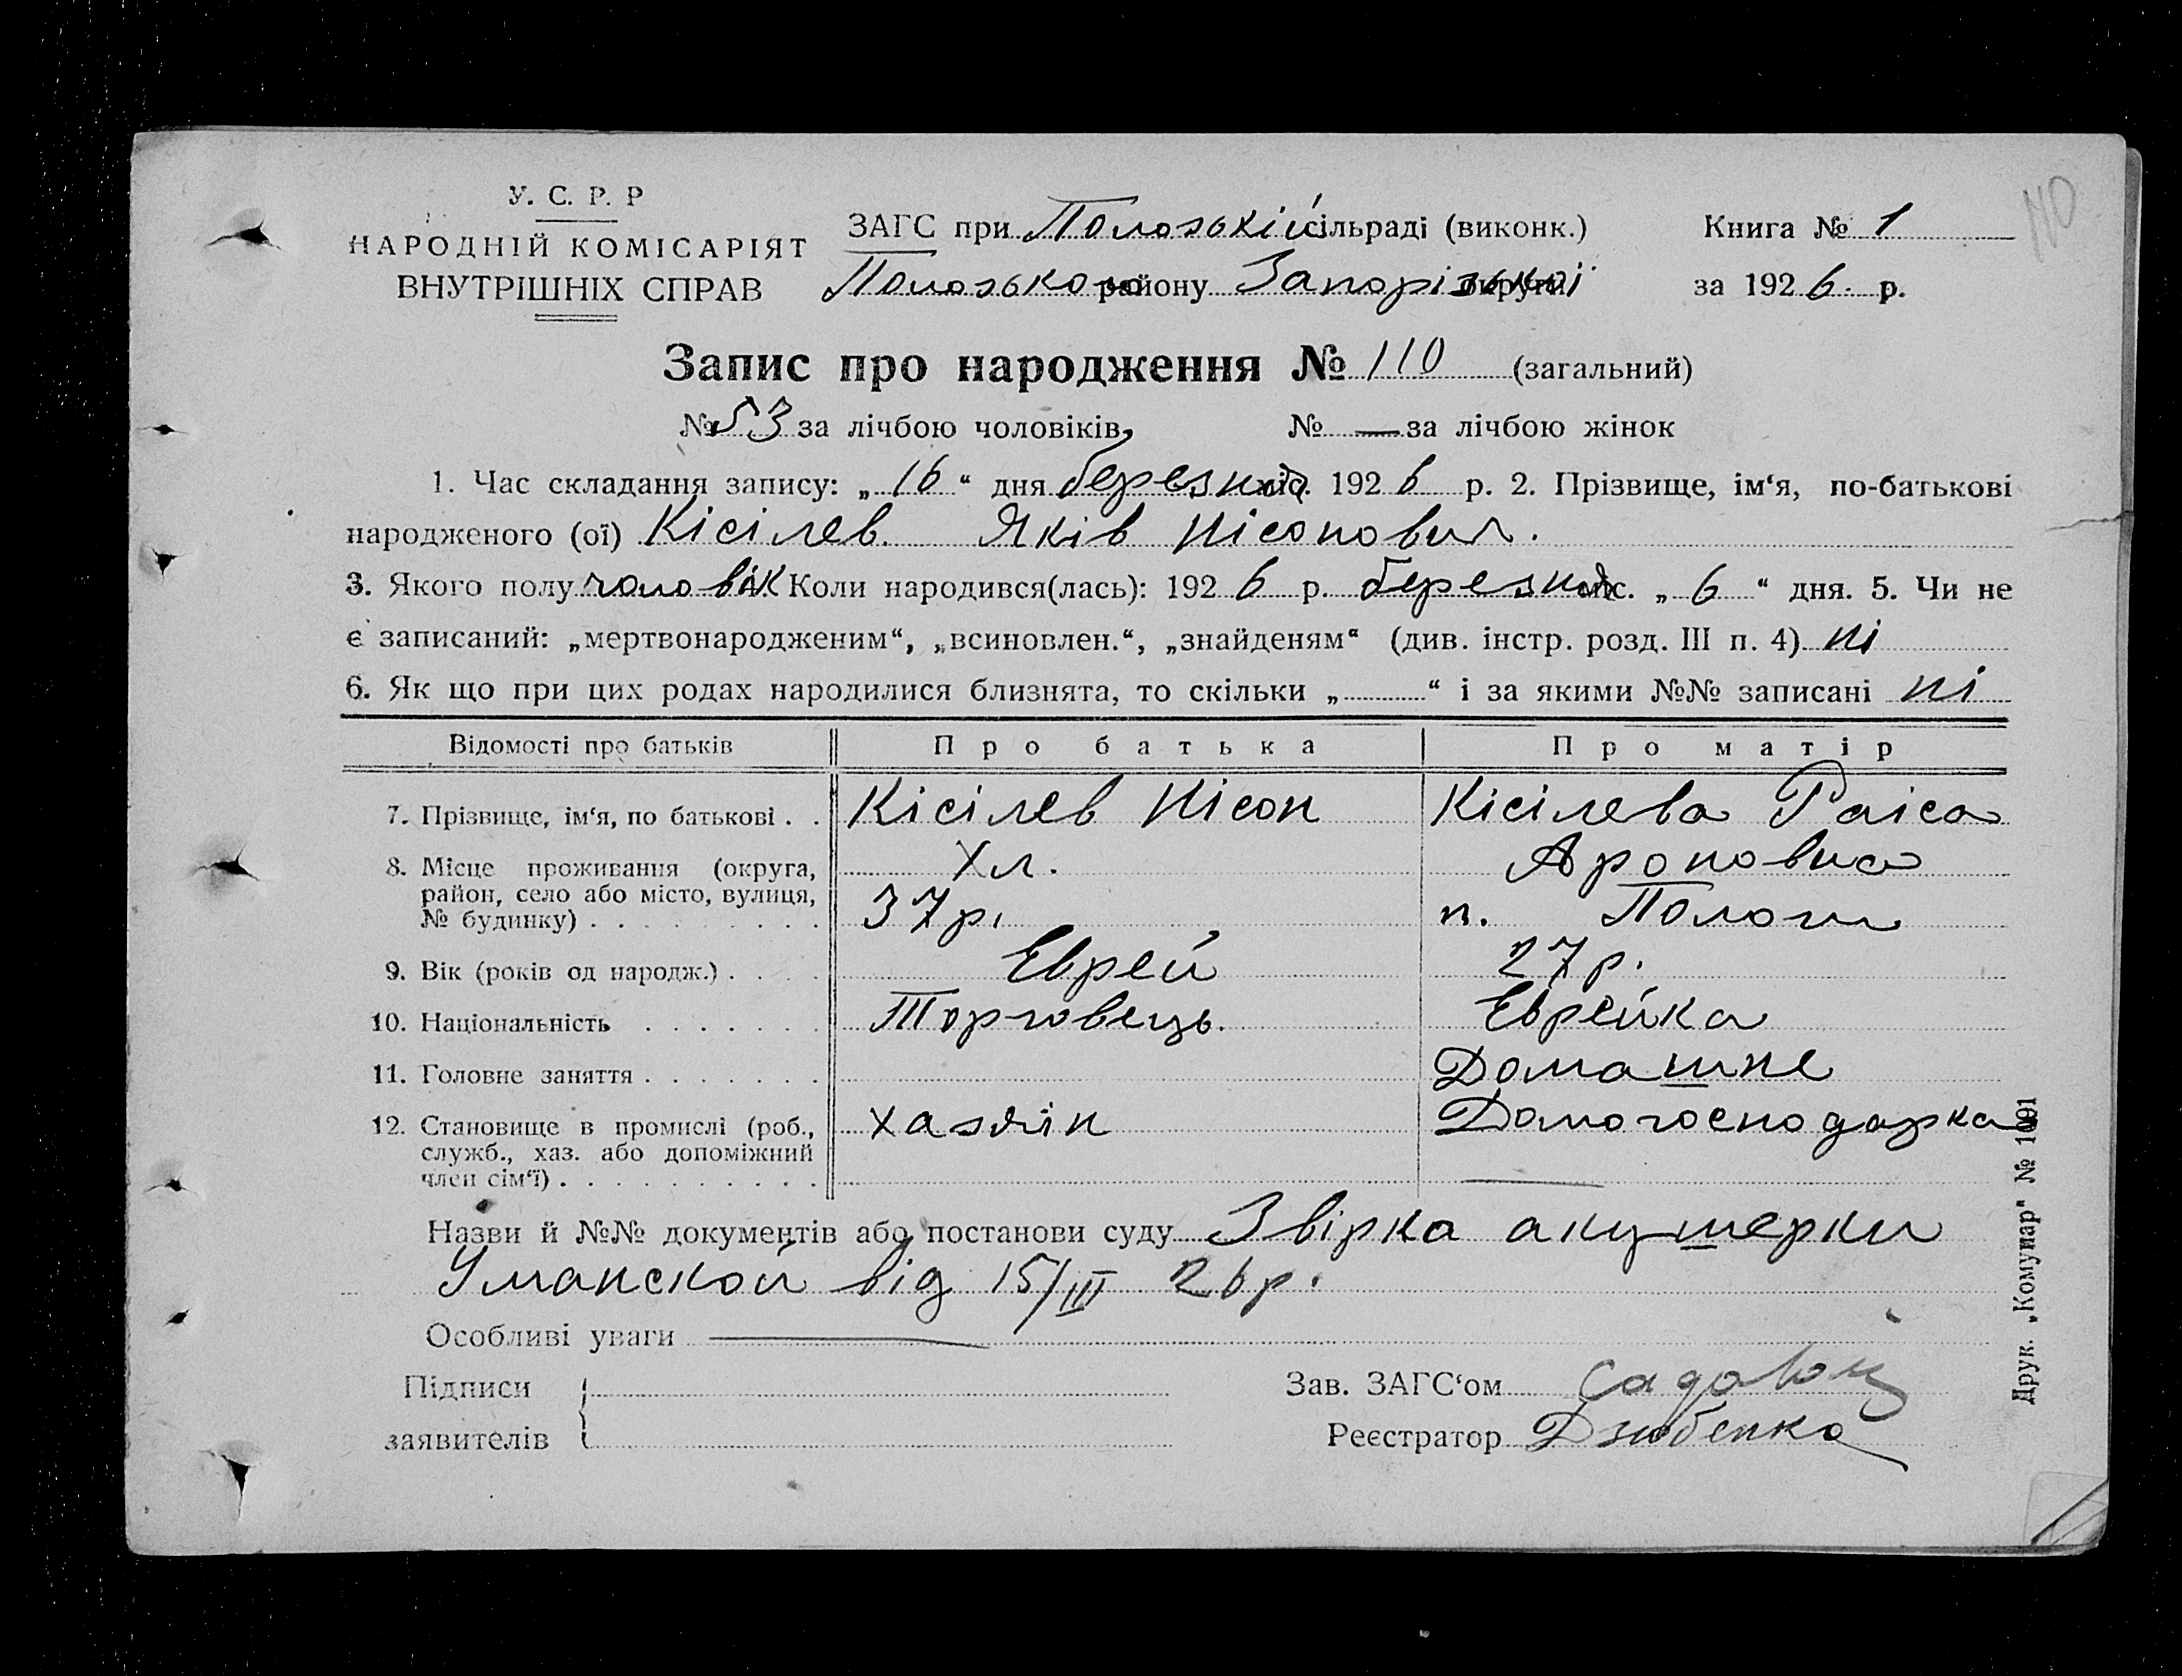 У. С. Р. Р
НАРОДНІЙ КОМІСАРІЯТ
ВНУТРІШНІХ СПРАВ
ЗАГС при Пологькій сільраді (виконк.)
Пологького району Запорізької округи
Книга № 1
за 1926 р.
110
Запис про народження № 110 (загальний)
№ 53 за лічбою чоловіків, № — за лічбою жінок
1. Час складання запису: „16“ дня березня міс. 1926 р. 2. Прізвище, ім‘я, по-батькові
народженого (ої) Кісілев Яків Нісонович.
3. Якого полу чоловік Коли народився(лась): 1926 р. березня міс. „6“ дня. 5. Чи не
є записаний: „мертвонародженим“, „всиновлен.“, „знайденям“ (див. інстр. розд. III п. 4) ні
6. Як що при цих родах народилися близнята, то скільки „ “ і за якими №№ записані ні
Відомості про батьків Про батька Про матір
7. Прізвище, ім‘я, по батькові . . Кісілев Нісон Кісілева Раіса
8. Місце проживання (округа, Хл. Ароновна
район, село або місто, вулиця,
№ будинку) . . . . . . . . . 37р. п. Пологи
9. Вік (років од народж.) . . . . Еврей 27р.
10. Національність . . . . . . . Торговець. Еврейка
11. Головне заняття . . . . . . . Домашне
12. Становище в промислі (роб., хазяїн Домогосподарка
служб., хаз. або допоміжний
член сім‘ї) . . . . . . . . . . —
Назви й №№ документів або постанови суду Звірка акушерки
Уманской від 15/III 26р.
Особливі уваги —
Підписи
заявителів
Зав. ЗАГС‘ом Садовой
Реєстратор Дзюбенко
Друк. „Комунар“ № 1091